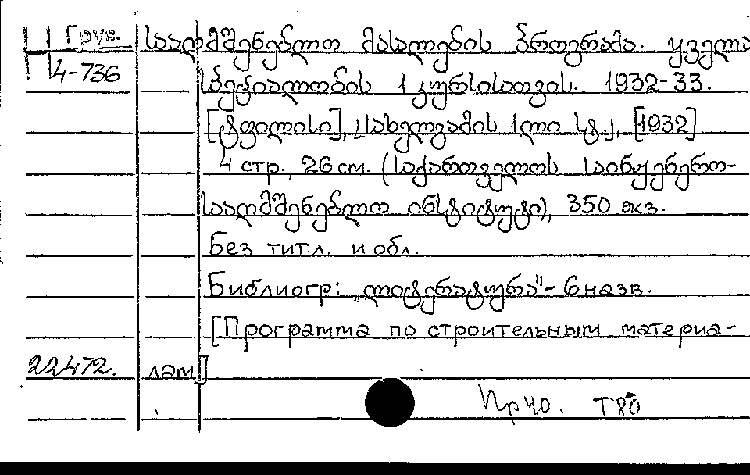 Груз. სააღმშენებლო მასალების პროგრამა. ყველა
4-736 სპეციალობის 1 კურსისათვის. 1932-33.
[ტფილისი], სახელგამის 1ლი სტ., [1932]
4 стр., 26 см. (საქართველოს საინჟენერო-
სააღმშენებლო ინსტიტუტი), 350 экз.
Без титл. и обл.
Библиогр: „ლიტერატურა"- 6 назв.
[Программа по строительным материа-
22472. лам]
Пр 40. Т80